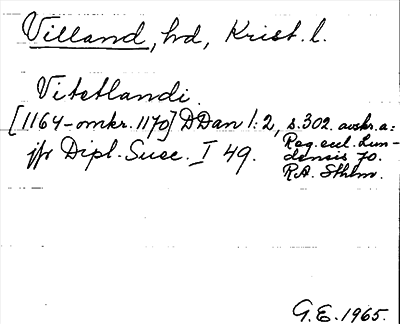 Villand, hd, Krist. l.
Vitetlandi.
[1164-omkr. 1170] DDan 1:2, s. 302. avskr. a:
jfr Dipl. Suec. I 49.
Reg. eccl. Lun-
densis 70.
R.A. Sthlm.
G.E. 1965.